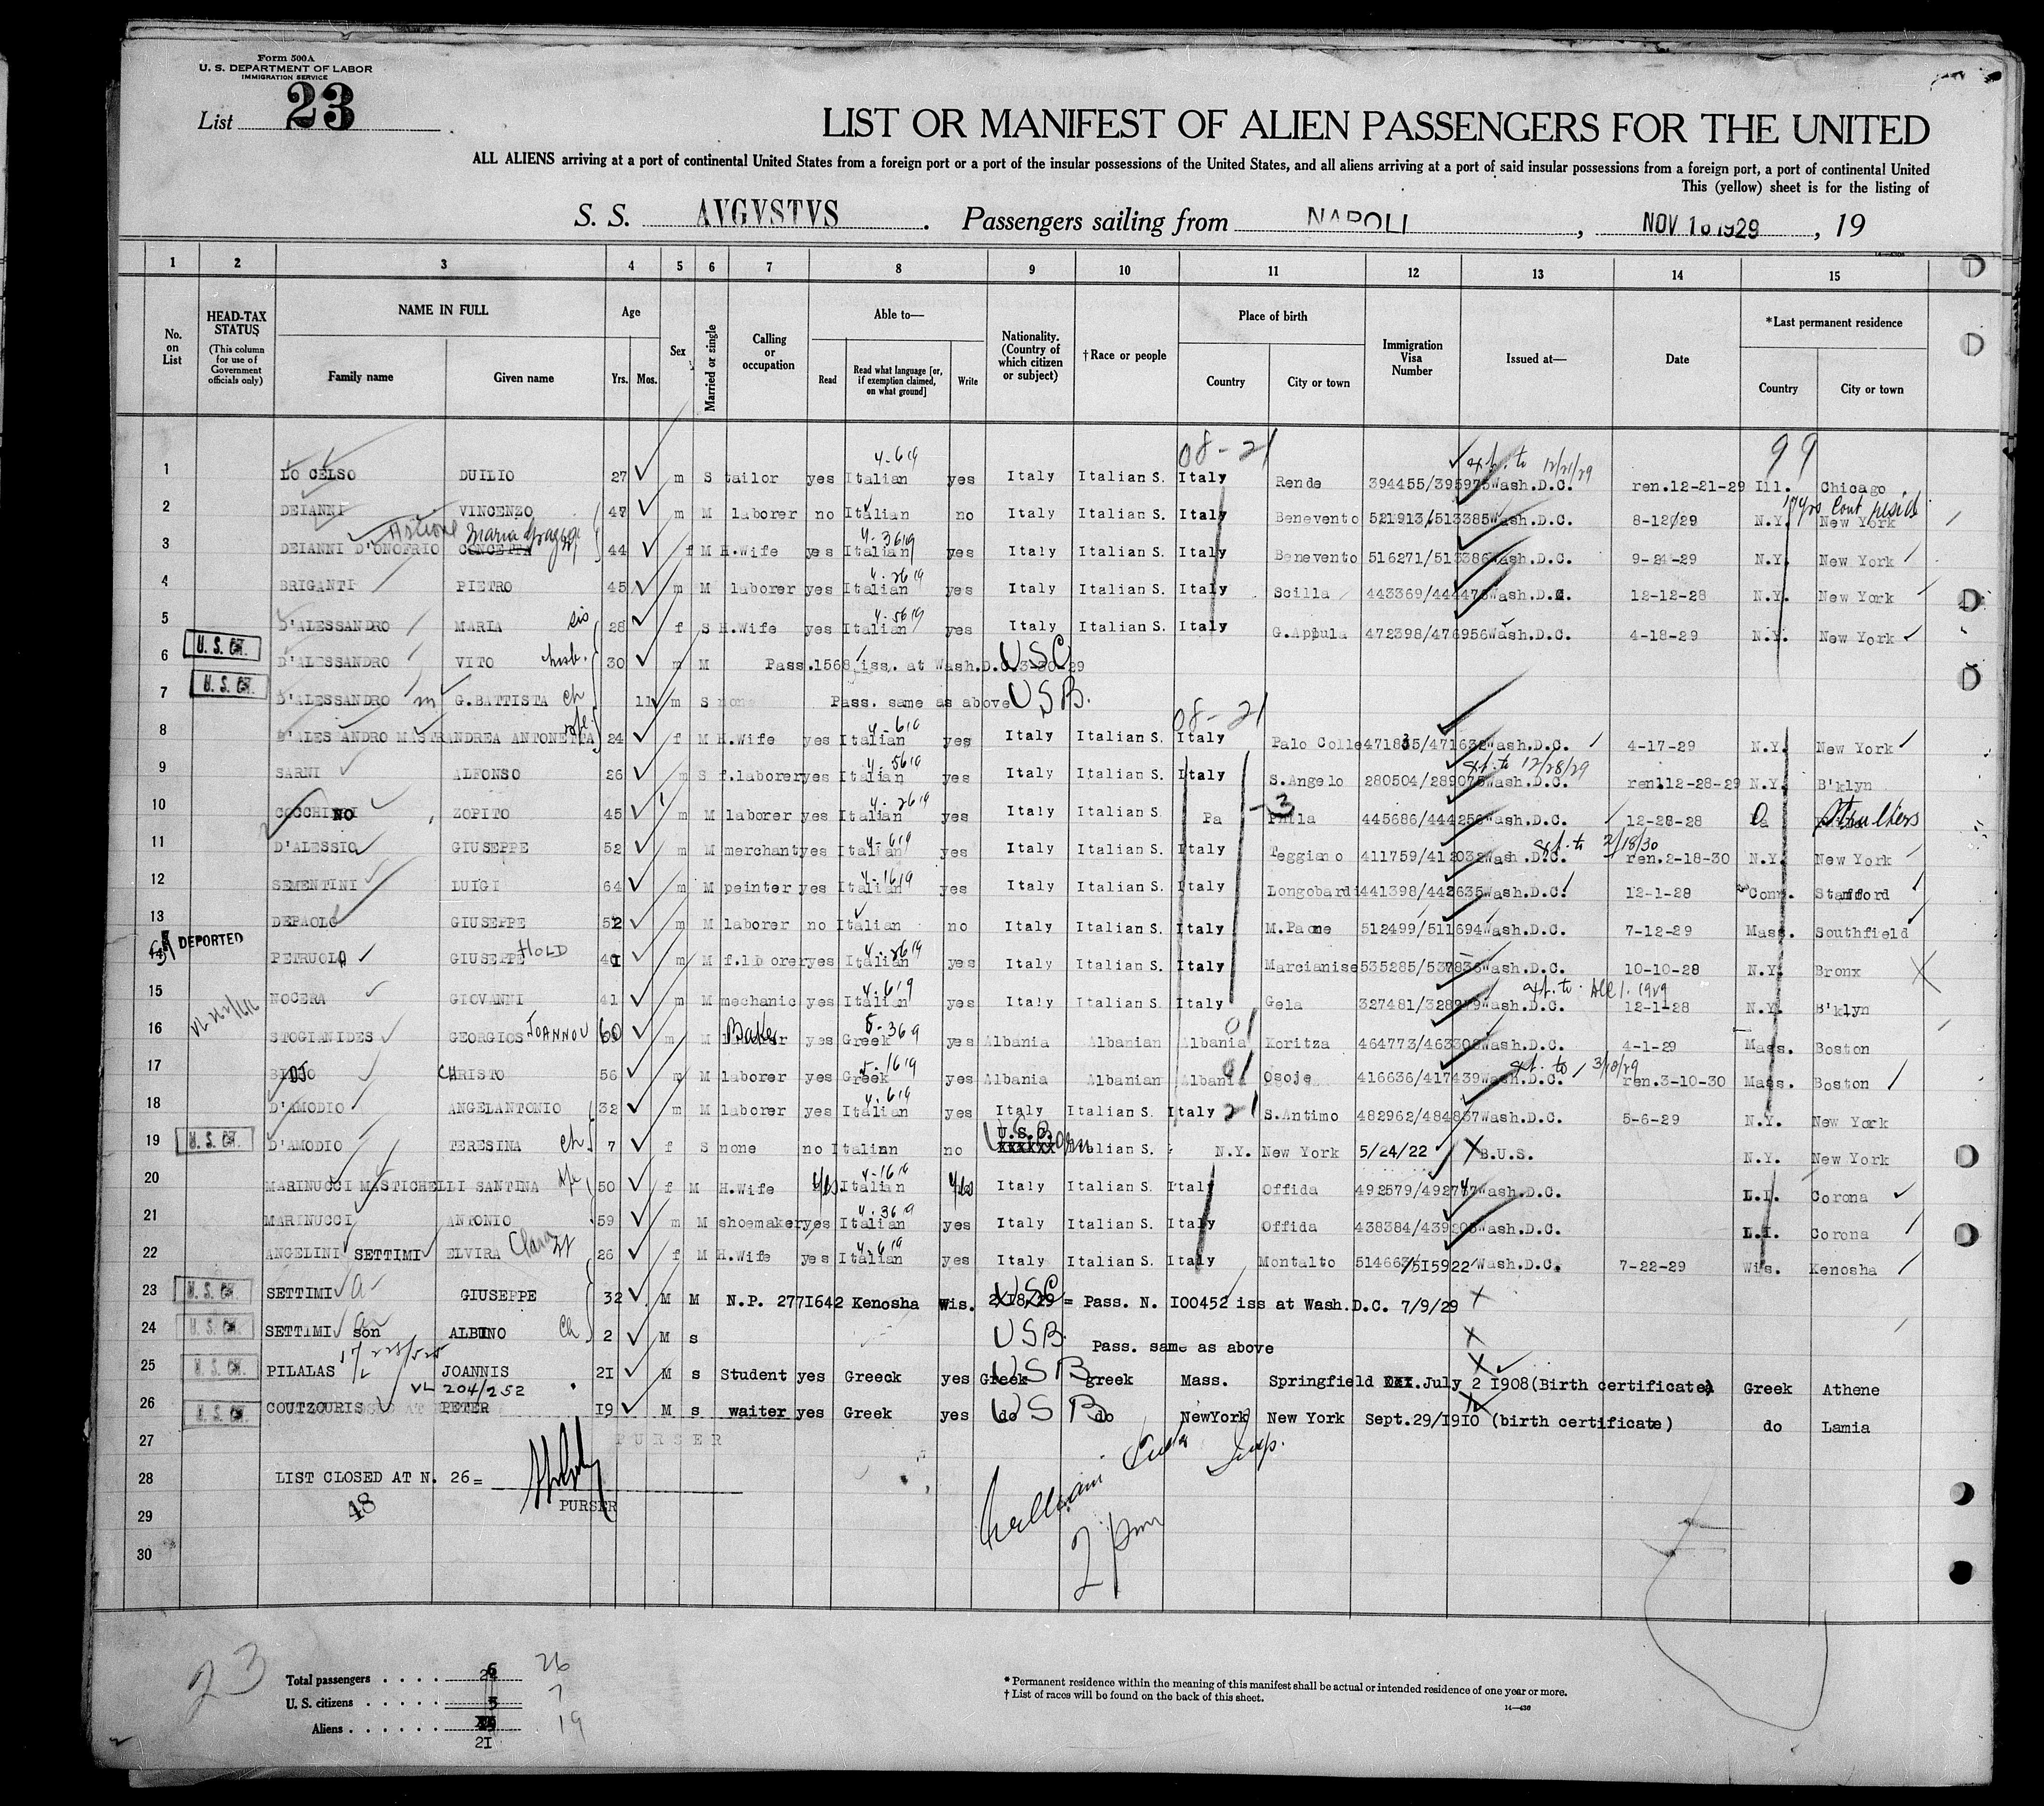 Form 500A
U. S. DEPARTMENT OF LABOR
IMMIGRATION SERVICE
List 23
LIST OR MANIFEST OF ALIEN PASSENGERS FOR THE UNITED
ALL ALIENS arriving at a port of continental United States from a foreign port or a port of the insular possessions of the United States, and all aliens arriving at a port of said insular possessions from a foreign port, a port of continental United
This (yellow) sheet is for the listing of
S. S. AVGVSTVS. Passengers sailing from NAPOLI, NOV 16 1929, 19
1 2 3 4 5 6 7 8 9 10 11 12 13 14 15
No. on List
HEAD-TAX STATUS (This column for use of Government officials only)
NAME IN FULL
Family name Given name
Age
Yrs. Mos.
Sex
Married or single
Calling or occupation
Able to—
Read
Read what language [or, if exemption claimed, on what ground]
Write
Nationality. (Country of which citizen or subject)
†Race or people
Place of birth
Country City or town
Immigration Visa Number
Issued at—
Date
*Last permanent residence
Country City or town
08-21 99
4-619 ext. to 12/21/29
1 LO CELSO DUILIO 27 m S tailor yes Italian yes Italy Italian S. Italy Rende 394455/395975 Wash.D.C. ren.12-21-29 Ill. Chicago
17 yrs Cont. resid
2 DEIANNI VINCENZO 47 m M laborer no Italian no Italy Italian S. Italy Benevento 521913/513385 Wash.D.C. 8-12/29 N.Y. New York
Maria 4-3619
3 DEIANNI D'ONOFRIO CONCETTA 44 f M H.Wife yes Italian yes Italy Italian S. Italy Benevento 516271/513386 Wash.D.C. 9-24-29 N.Y. New York
4-2619
4 BRIGANTI PIETRO 45 m M laborer yes Italian yes Italy Italian S. Italy Scilla 443369/444476 Wash.D.C. 12-12-28 N.Y. New York
4-5619
5 D'ALESSANDRO MARIA sis 28 f S H.Wife yes Italian yes Italy Italian S. Italy G.Appula 472398/476956 Wash.D.C. 4-18-29 N.Y. New York
U. S. CIT.
6 D'ALESSANDRO VITO husb. 30 m M Pass.1568 iss. at Wash.D.C. 3-30-29 USC
U. S. CIT.
7 D'ALESSANDRO m G.BATTISTA ch 11 m S none Pass. same as above USB.
08-21
4-619
8 D'ALESSANDRO MASTRANDREA ANTONETTA wfe 24 f M H.Wife yes Italian yes Italy Italian S. Italy Palo Colle 471835/471632 Wash.D.C. 4-17-29 N.Y. New York
4-5619 ext. to 12/28/29
9 SARNI ALFONSO 26 m S f.laborer yes Italian yes Italy Italian S. Italy S.Angelo 280504/289075 Wash.D.C. ren.12-28-29 N.Y. B'klyn
4-2619 -3
10 COCCHINO ZOPITO 45 m M laborer yes Italian yes Italy Italian S Pa Phila 445686/444256 Wash.D.C. 12-28-28 Pa
4-619 ext. to 2/18/30
11 D'ALESSIO GIUSEPPE 52 m M merchant yes Italian yes Italy Italian S. Italy Teggiano 411759/412032 Wash.D.C. ren.2-18-30 N.Y. New York
4-1619
12 SEMENTINI LUIGI 64 m M peinter yes Italian yes Italy Italian S. Italy Longobardi 441398/442635 Wash.D.C. 12-1-28 Conn. Stamford
13 DEPAOLO GIUSEPPE 52 m M laborer no Italian no Italy Italian S. Italy M.Paone 512499/511694 Wash.D.C. 7-12-29 Mass. Southfield
DEPORTED
4-2619
14 PETRUOLO GIUSEPPE HOLD 41 m M f.laborer yes Italian yes Italy Italian S. Italy Marcianise 535285/537836 Wash.D.C. 10-10-28 N.Y. Bronx
4-619 ext. to Dec 1. 1929
15 NOCERA GIOVANNI 41 m M mechanic yes Italian yes Italy Italian S. Italy Gela 327481/328979 Wash.D.C. 12-1-28 N.Y. B'klyn
5-369 01
16 STOGIANIDES GEORGIOS JOANNOU 60 m M Baker yes Greek yes Albania Albanian Albania Koritza 464773/463308 Wash.D.C. 4-1-29 Mass. Boston
5-1619 01 ext. to 3/10/29
17 CHRISTO 56 m M laborer yes Greek yes Albania Albanian Albania Osoje 416636/417439 Wash.D.C. ren.3-10-30 Mass. Boston
4-619
18 D'AMODIO ANGELANTONIO 32 m M laborer yes Italian yes Italy Italian S. Italy 21 S.Antimo 482962/484837 Wash.D.C. 5-6-29 N.Y. New York
U. S. CIT.
19 D'AMODIO TERESINA ch 7 f S none no Italian no U.S.B. Born Italian S. N.Y. New York 5/24/22 B.U.S. N.Y. New York
4-1619
20 MARINUCCI MASTICHELLI SANTINA wfe 50 f M H.Wife yes Italian yes Italy Italian S. Italy Offida 492579/492747 Wash.D.C. L.I. Corona
4-3619
21 MARINUCCI ANTONIO 59 m M shoemaker yes Italian yes Italy Italian S. Italy Offida 438384/439205 Wash.D.C. L.I. Corona
4-619
22 ANGELINI SETTIMI ELVIRA Clara 26 f M H.Wife yes Italian yes Italy Italian S. Italy Montalto 514663/515922 Wash.D.C. 7-22-29 Wis. Kenosha
U. S. CIT.
23 SETTIMI GIUSEPPE 32 M M N.P. 2771642 Kenosha Wis. 2/18/29 = Pass. N. 100452 iss at Wash.D.C. 7/9/29 USC
U. S. CIT.
24 SETTIMI son ALBINO ch 2 M s USB. Pass. same as above
U. S. CIT.
25 PILALAS JOANNIS 21 M s Student yes Greeck yes Greek USB greek Mass. Springfield July 2 1908 (Birth certificate) Greek Athene
VL 204/252
U. S. CIT.
26 COUTZOURIS PETER 19 M s waiter yes Greek yes do USB do NewYork New York Sept.29/1910 (birth certificate) do Lamia
27 PURSER
28 LIST CLOSED AT N. 26=
PURSER
48
29
30
2 pm
23
Total passengers 26
U. S. citizens 7
Aliens 19
21
* Permanent residence within the meaning of this manifest shall be actual or intended residence of one year or more.
† List of races will be found on the back of this sheet.
14—430